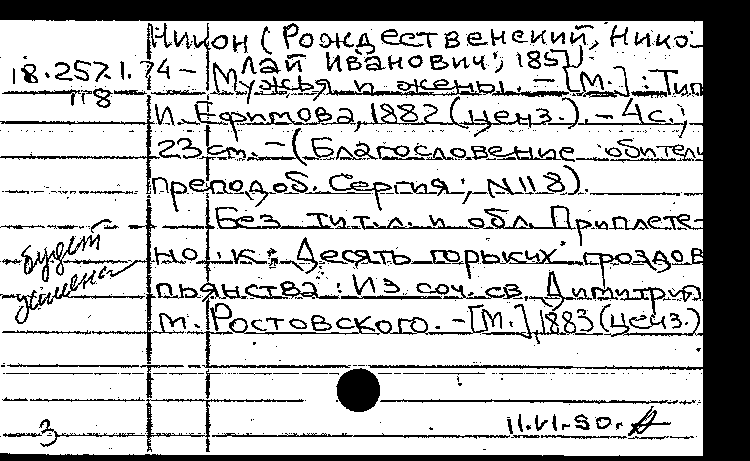 Никон (Рождественский, Нико-
лай Иванович; 185
18.257.1.74 - Мужья и жены. - [М.] : Тип
П8
И. Ефимова, 1882 (ценз.). - 4с.;
23 см. - (Благословение обители
преподоб. Сергия; №118).
Без тит.л. и обл. Приплете-
но к: Десять горьких гроздов
пьянства : Из соч. св. Димитрия
м. Ростовского. - [М.], 1883 (ценз.)
будет
3
11.VI.90.